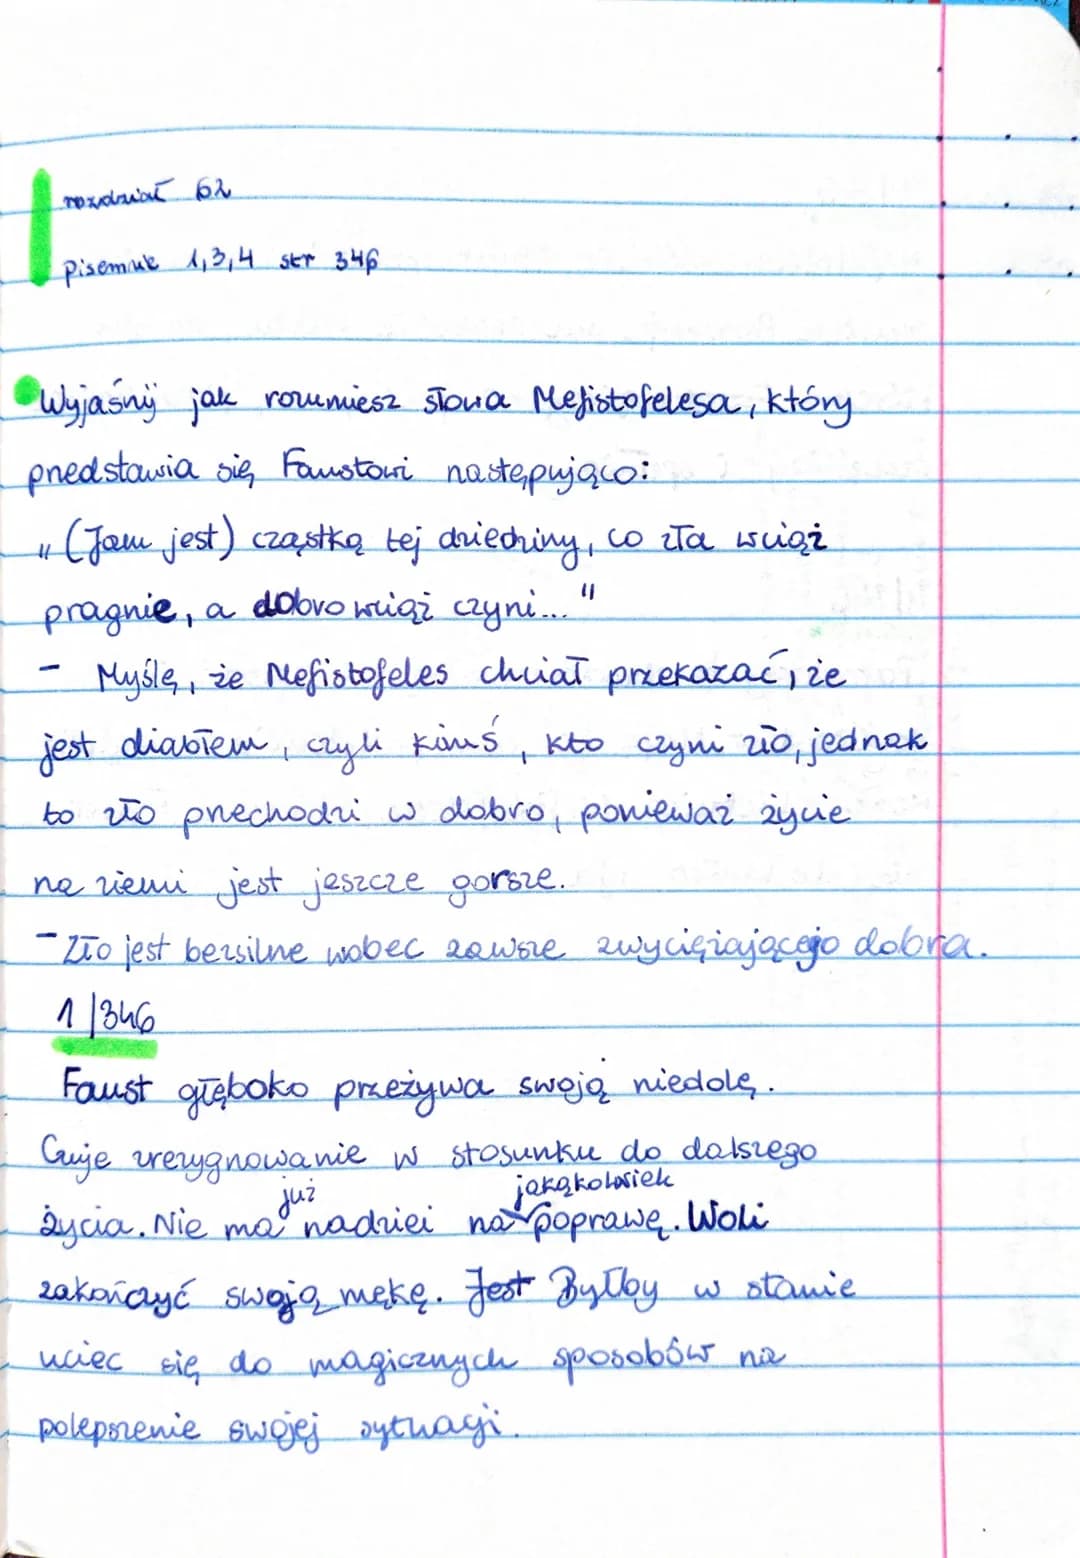 rozdział 62
pisemnie 1,3,4 str 346
Wyjaśnij jak rozumiesz słowa Mefistofelesa, który
przedstawia się Faustowi następująco:
"(Jam jest) cząstką tej dziedziny, co zła wciąż
pragnie, a dobro wciąż czyni..."
- Myślę, że Mefistofeles chciał przekazać, że
jest diabłem, czyli kimś, kto czyni zło, jednak
to zło przechodzi w dobro, ponieważ życie
na ziemi jest jeszcze gorsze.
- Zło jest bezsilne wobec zawsze zwyciężającego dobra.
1/346
Faust głęboko przeżywa swoją niedolę.
Czuje zrezygnowanie w stosunku do dalszego
już jakąkolwiek
życia. Nie ma nadziei na poprawę. Woli
zakończyć swoją mękę. Jest Byłby w stanie
uciec się do magicznych sposobów na
polepszenie swojej sytuacji.